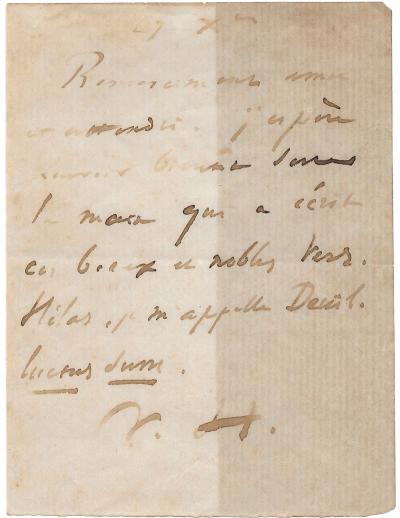 27 Xbre
Remerciement ému
et attendri. j'espère
pouvoir bientôt serrer
la main qui a écrit
ces beaux et nobles vers.
Hélas, je m'appelle Deuil.
luctus sum.
V. H.